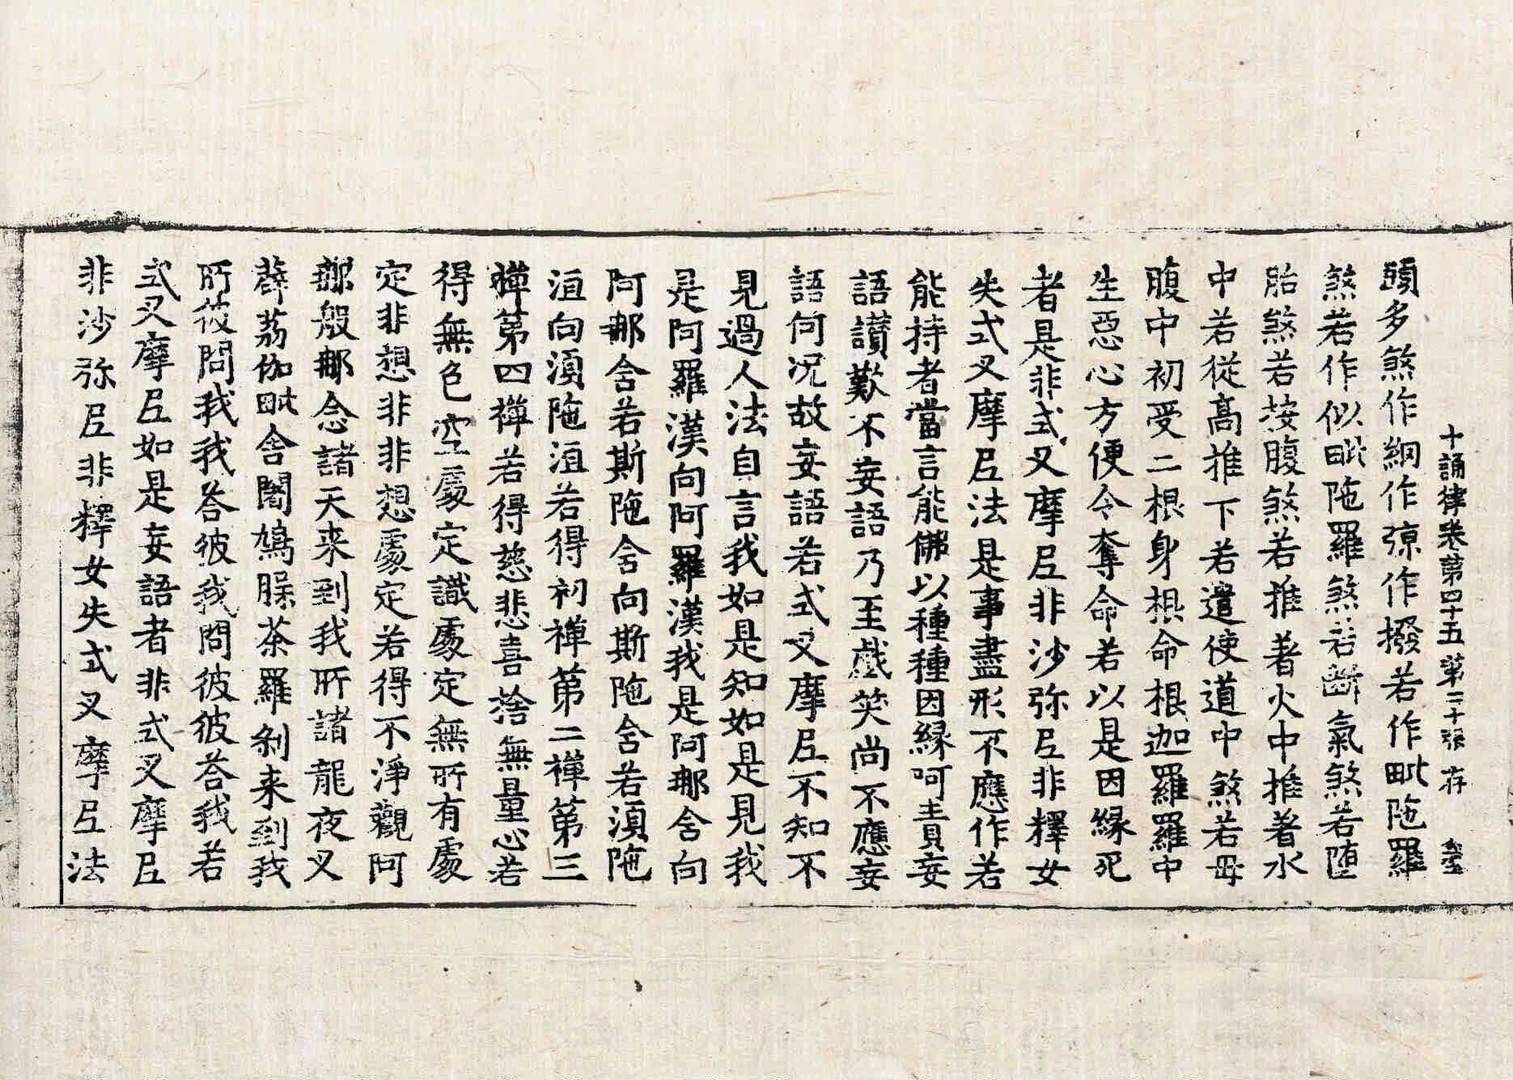 十誦律卷第四十五 第三十張 存
頭多煞作網作弶作撥若作毗陁羅
煞若作似毗陁羅煞若斷氣煞若堕
胎煞若按腹煞若推著火中推著水
中若從高推下若遣使道中煞若母
腹中初受二根身根命根迦羅羅中
生惡心方便令奪命若以是因緣死
者是非式叉摩尼非沙弥尼非釋女
失式叉摩尼法是事盡形不應作若
能持者當言能佛以種種因緣呵責妄
語讃歎不妄語乃至戲笑尚不應妄
語何况故妄語若式叉摩尼不知不
見過人法自言我如是知如是見我
是阿羅漢向阿羅漢我是阿那含向
阿那含若斯陁含向斯陁含若湏陁
洹向湏陁洹若得初禪第二禪第三
禪第四禪若得慈悲喜捨無量心若
得無色空處定識處定無所有處
定非想非非想處定若得不淨觀阿
那般那念諸天来到我所諸龍夜叉
薜荔伽毗舍闍鳩槃荼羅刹来到我
所彼問我我荅彼我問彼彼荅我若
式叉摩尼如是妄語者非式叉摩尼
非沙弥尼非釋女失式叉摩尼法